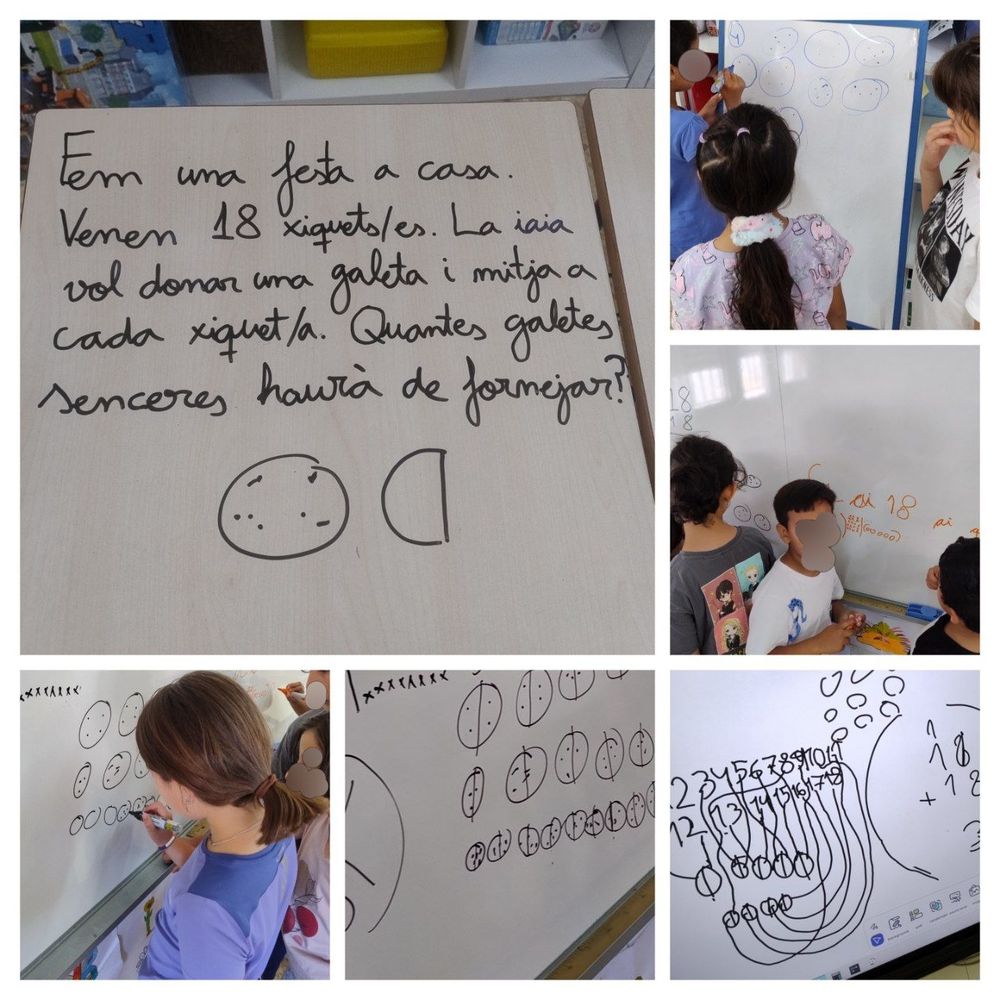 Fem una festa a casa.
Venen 18 xiquets/es. La iaia
vol donar una galeta i mitja a
cada xiquet/a. Quantes galetes
senceres haurà de fornejar?
18
18
si 18
xxxxxxxx
2 3 4 5 6 7 8 9 10 11
12 13 14 15 16 17 18
1
18
+ 18
3